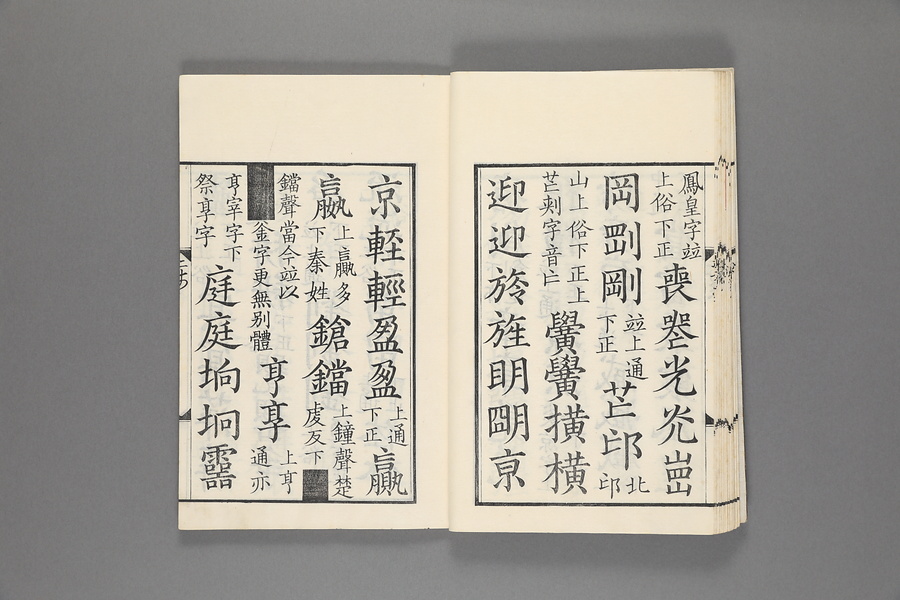 鳳皇字竝上俗下正 喪 光灮
岡剛 竝上通下正 芒邙 北邙
山上俗下正上芒剌字音亡 黌黌撗橫
迎迎旍旌眀朙亰
京輊輕盈盈 上通下正 贏
嬴 上贏多下秦姓 鎗鐺 上鐘聲楚庚反下
鐺聲當今竝以釡字更無別體 亨享 上亨通亦
亨宰字下祭享字 庭庭坰坰